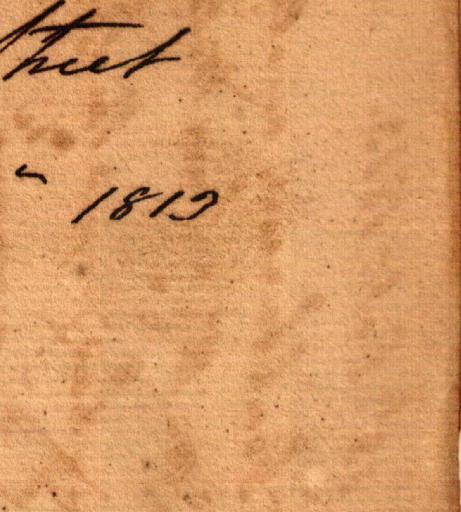 Street
1819